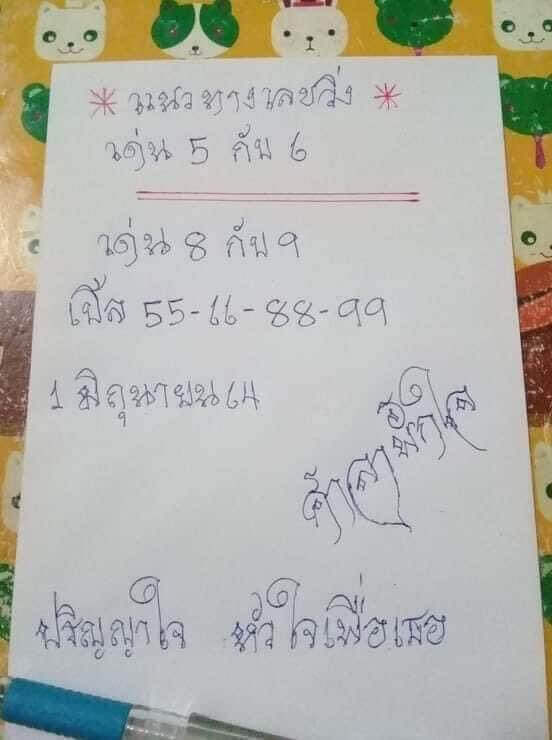 * แนวทางเลขวิ่ง *
เด่น 5 กับ 6
เด่น 8 กับ 9
เบิ้ล 55-66-88-99
1 มิถุนายน 64
ปริญญาใจ หัวใจเพื่อเธอ